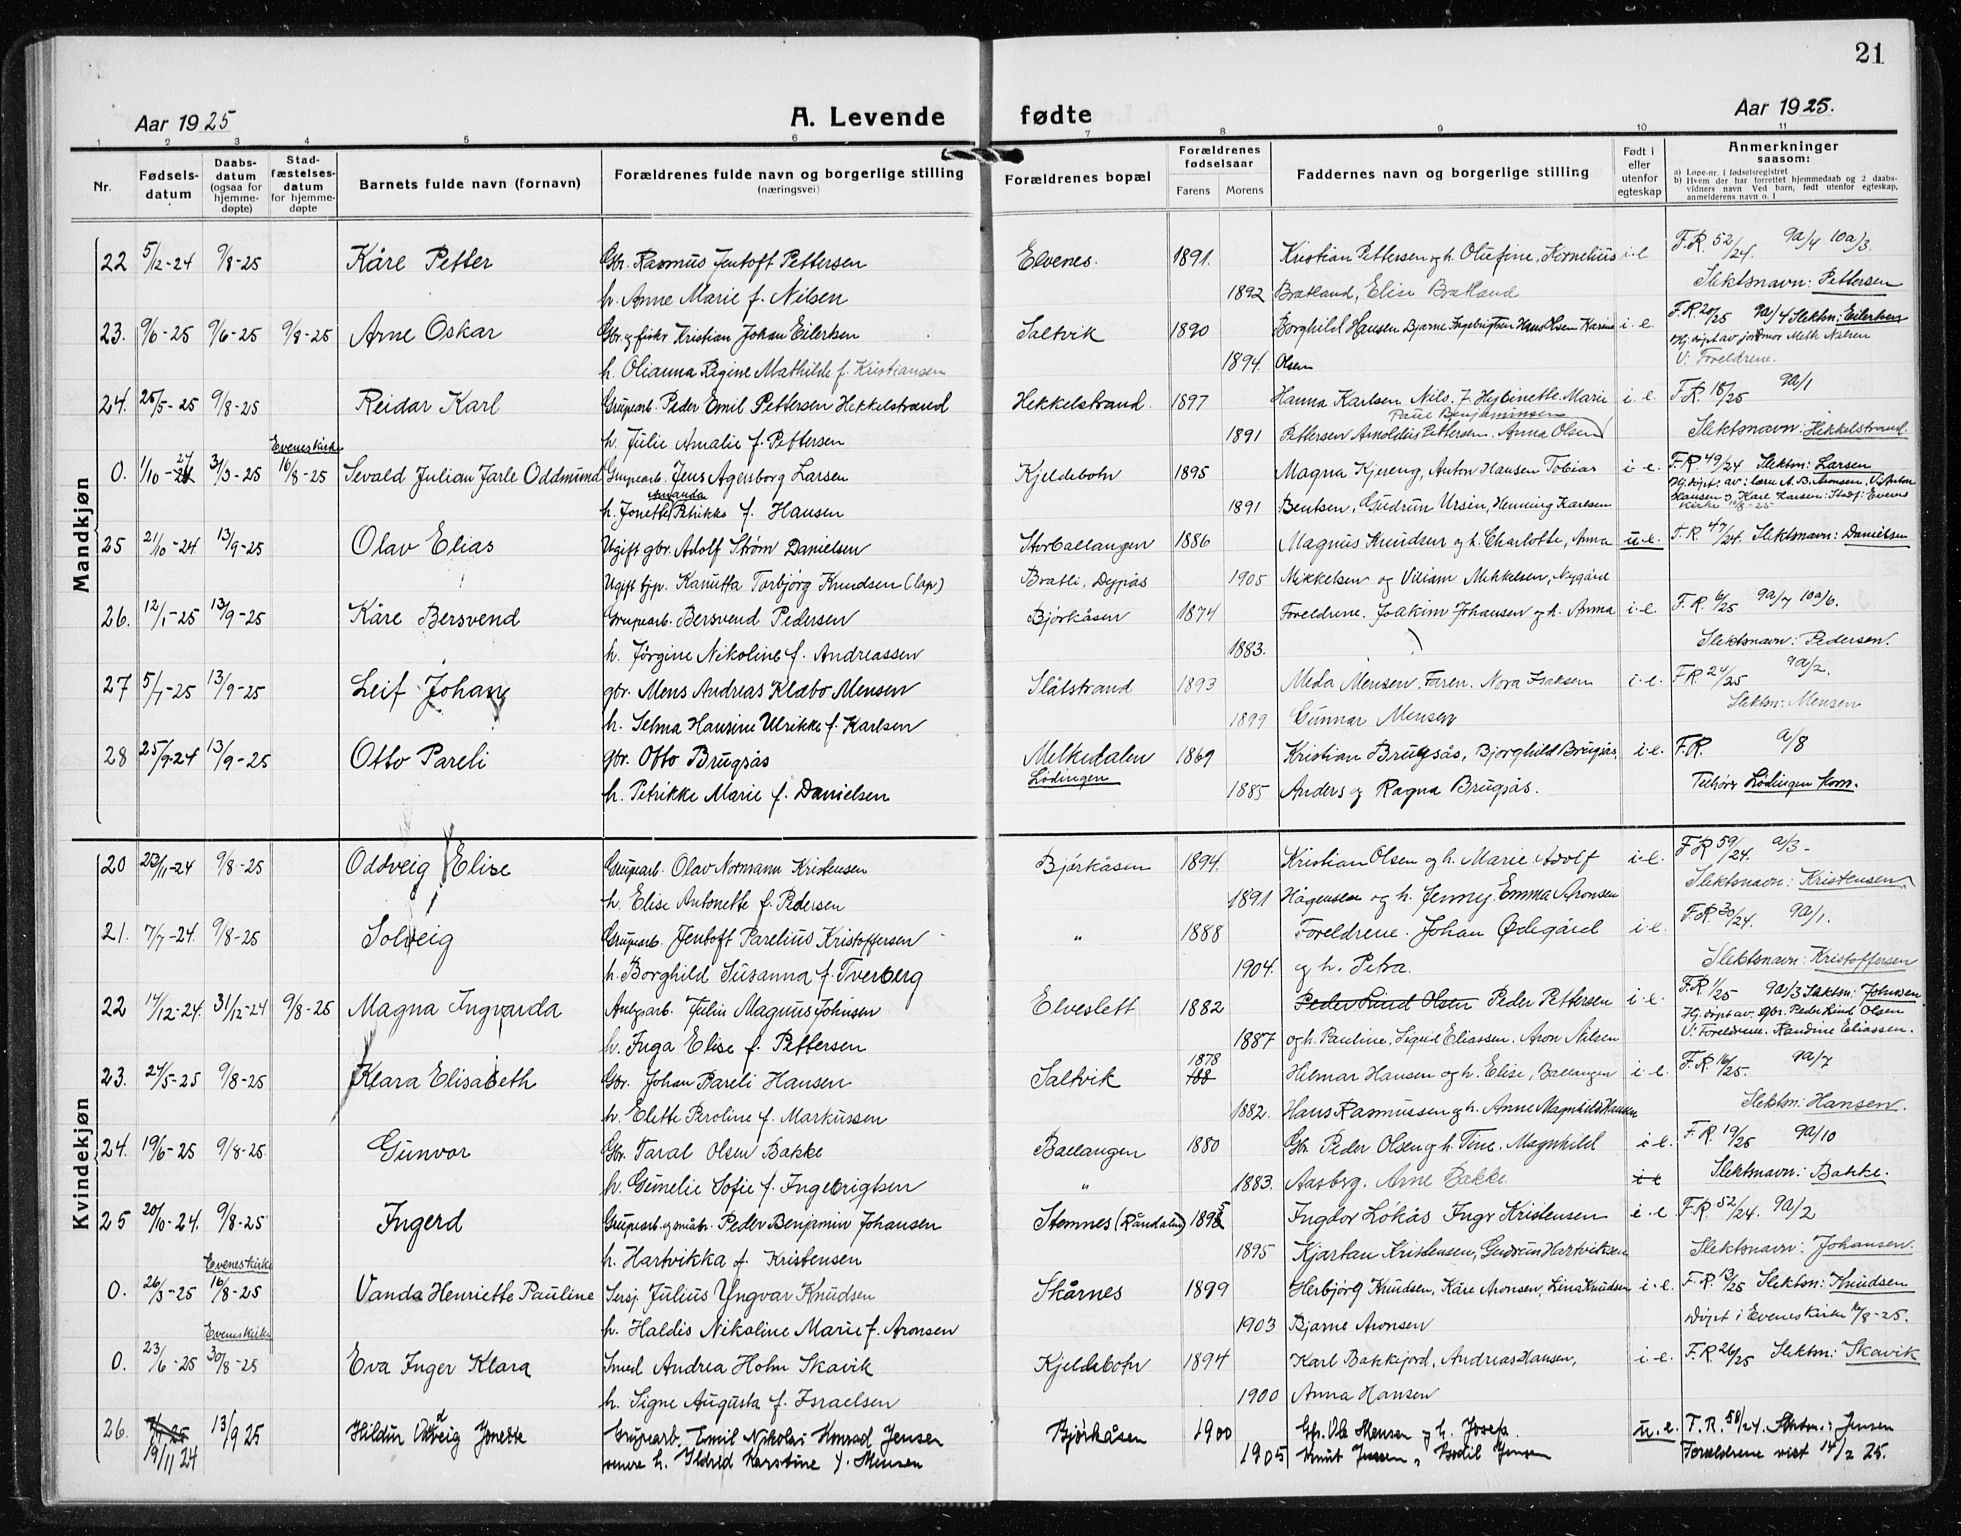 21
Aar 1925 A. Levende fødte Aar 1925.
1 2 3 4 5 6 7 8 9 10 11
Nr. Fødselsdatum Daabsdatum (ogsaa for hjemmedøpte) Stadfæstelsesdatum for hjemmedøpte Barnets fulde navn (fornavn) Forældrenes fulde navn og borgerlige stilling (næringsvei) Forældrenes bopæl Forældrenes fødselsaar Farens Morens Faddernes navn og borgerlige stilling Født i eller utenfor egteskap Anmerkninger saasom:
a) Løpe-nr. i fødselsregistret
b) Hvem der har forrettet hjemmedaab og 2 daabsvidners navn Ved barn, født utenfor egteskap, anmelderens navn o. l
Mandkjøn
22 5/12-24 9/8-25 Kåre Petter Gbr. Rasmus Jentoft Pettersen Elvenes. 1891. Kristian Pettersen og h. Olufine, Kornelius i-e F.R. 52/24. 9a/4 10a/3.
h. Anne Marie f. Nilsen 1892 Bratland, Elise Bratland Slektsnavn: Pettersen
23. 9/6-25 9/6-25 9/8-25 Arne Oskar Gbr. og fisker Kristian Johan Eilertsen Saltvik 1890 Borghild Hansen Bjarne Ingebrigtsen Hans Olsen Karine i-e. F.R. 20/25 9a/4 Slektsn: Eilertsen
Hj. døpt av jordmor Meth Nilsen
h. Olianna Regine Mathilde f. Kristiansen 1894. Olsen V: Foreldrene.
24. 25/5-25 9/8-25 Reidar Karl Grupearb. Peder Emil Pettersen Hekkelstrand Hekkelstrand. 1897 Hanna Karlsen Nils. J. Hybinette. Marie i-e. F.R. 18/25 9a/1
Paul Benjaminsen
h. Julie Amalie f. Pettersen 1891 Pettersen Arnoldus Pettersen. Anna Olsen Slektsnavn: Hekkelstrand.
Eveneskirke
0. 1/10-24 31/3-25 16/8-25 Sevald Julian Jarle Oddmund Grupearb. Jens Agersborg Larsen Kjeldebotn 1895 Magna Kjereng, Anton Hansen Tobias i-e F.R. 49/24 Slektsn: Larsen
Hj. døpt: av: lærer A. B. Aronsen. V: Anton
Amanda
h. Jonette Petrikke f. Hansen 1891 Bentsen, Gudrun Ursin, Henning Karlsen Hansen og Kåre Larsen: Stadf: Evenes kirke 16/8-25
25 21/10-24 13/9-25 Olav Elias Ugift gbr. Adolf Strøm Danielsen Storballangen 1886 Magnus Knudsen og h. Charlotte, Anna u-e. F.R. 47/24. Slektsnavn: Danielsen
Ugift tjp. Kanutta Torbjørg Knudsen (lap) Bratli, Dypås 1905 Mikkelsen og Viliam Mikkelsen, Nygård
26. 12/1-25 13/9-25 Kåre Bersvend Grupearb. Bersvend Pedersen Bjørkåsen 1874 Foreldrene. Joakim Johansen og h. Anna i-e. F.R. 6/25 9a/7 10a/6.
h. Jørgine Nikoline f. Andreassen 1883. Slektsnavn: Pedersen.
27 5/7-25 13/9-25 Leif Johan gbr. Mens Andreas Klæbo Mensen Slåtstrand 1893 Meda Mensen. Faren. Nora Isaksen i-e. F.R. 24/25 9a/2.
h. Selma Hansine Ulrikke f. Karlsen 1899 Gunnar Mensen Slektsn: Mensen
28 25/9-24 13/9-25 Otto Pareli gbr. Otto Brugsås Melkedalen 1869 Kristian Brugsås, Bjorghild Brugsås, i-e. F.R. a/8
h. Petrikke Marie f. Danielsen Lødingen 1885 Anders og Ragna Brugsås. Tilhører Lødingen kom.
Kvindekjøn
20 /11-24 9/8-25 Oddveig Elise Grupearb. Olav Normann Kristensen Bjørkåsen 1894. Kristian Olsen og h. Marie. Adolf i-e. F.R. 59/24. a/3-
h. Elise Antonette f. Pedersen 1891 Hågensen og h. Jenny. Emma Aronsen Slektsnavn: Kristensen
21. 7/7-24. 9/8-25 Solveig Grupearb. Jentoft Parelius Kristoffersen " 1888 Foreldrene. Johan Ødegård i-e. F.R. 30/24. 9a/1.
h. Borghild Susanna f. Tverberg 1904. og h. Petra. Slektsnavn: Kristoffersen
22 14/12-24. 31/12-24 9/8-25 Magna Ingvarda Anlegarb. Julin Magnus Johnsen Elveslett 1882 Peder Lind Olsen Peder Pettersen i-e. F.R. 1/25 9a/3 Slektsn: Johnsen
Hj. døpt av gbr. Peder Lind Olsen
h. Inga Elise f. Pettersen 1887 og h. Pauline. Sigrid Eliassen. Aron Nilsen V: Foreldrene. Randine Eliassen.
23. 24/5-25 9/8-25 Klara Elisabeth Gbr. Johan Pareli Hansen Saltvik 1878 188 Hilmar Hansen og h. Elise, Ballangen i-e. F.R. 16/25. 9a/7
h. Elette Peroline f. Markussen 1882. Hans Rasmussen og h. Anne Magnhild Hansen Slektsn: Hansen.
24. 19/6-25 9/8-25 Gunvor Gbr. Taral Olsen Bakke Ballangen 1880 Gbr. Peder Olsen og h. Tine. Magnhild i-e. F.R. 19/25 9a/10
h. Gunelie Sofie f. Ingebrigtsen " 1883. Aasberg. Arne Bakke i-e Slektsnavn: Bakke.
25 20/10-24. 9/8-25 Ingerd Grupearb. og småbr. Peder Benjamin Johansen Stemnes (Råndalen) 1895 Ingdor Lökås Ingr Kristensen i-e F.R. 52/24. 9a/2
h. Hartvikka f. Kristensen 1895 Kjartan Kristensen, Gudrun Hartviksen Slektsnavn: Johansen.
Eveneskirke
0. 26/3-25 16/8-25 Vanda Henriette Pauline Sersj. Julius Yngvar Knudsen Skårnes 1899 Herbjørg Knudsen, Kåre Aronsen, Lina Knudsen i-e. F.R. 13/25 Slektsn: Knudsen
h. Haldis Nikoline Marie f. Aronsen 1903 Bjarne Aronsen Døpt i Evenes kirke 16/8-25.
Eveneskirke
0. 23/6-25 30/8-25 Eva Inger Klara Smed Andrea Holm Skavik Kjeldebotn 1894 Karl Bakkejord, Andreas Hansen, i-e. F.R. 26/25 Slektsn: Skavik
h. Signe Augusta f. Israelsen 1900 Anna Hansen
26. 19/11 24 13/9 25 Hildur Oddveig Jonette Grupearb. Emil Nikolai Konrad Jensen Bjørkåsen 1900 Gbr. Ole Mensen og h. Josefa. u.e. F.R. 58/24. Slektsn.: Jensen
senere h. Ildrid Karstine f. Mensen 1905 Knut Jensen, Bodil Jensen Forældrene viet 14/2 25.